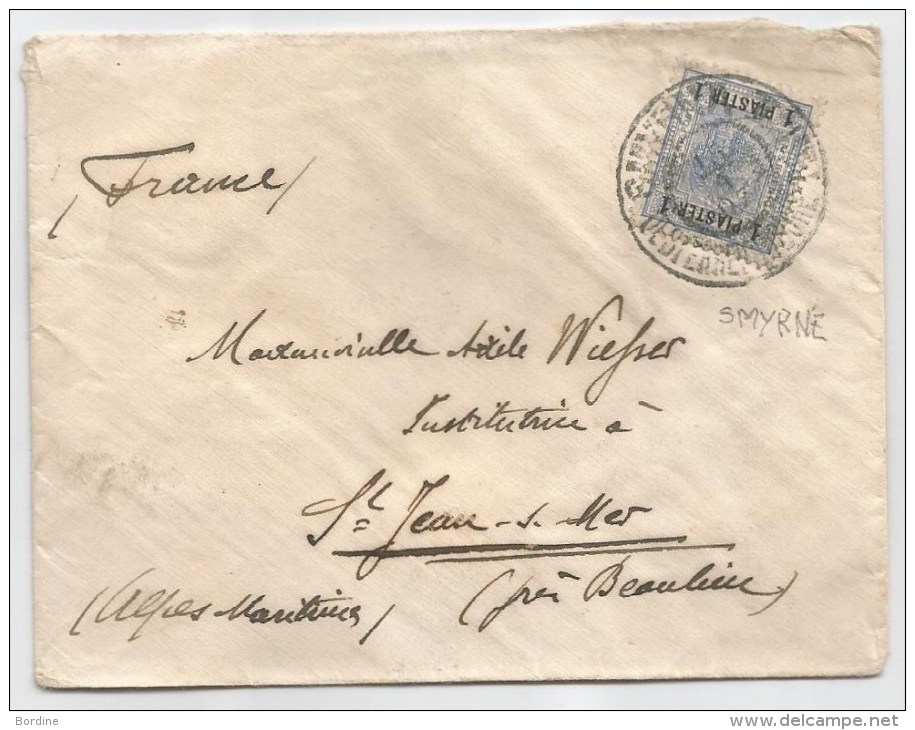 1 PIASTER 1
1 PIASTER 1
SMYRNE
France
Mademoiselle Adèle Wiesser
Institutrice à
St. Jean-s.-Mer
(près Beaulieu)
(Alpes Maritimes)
Bordine
www.delcampe.net